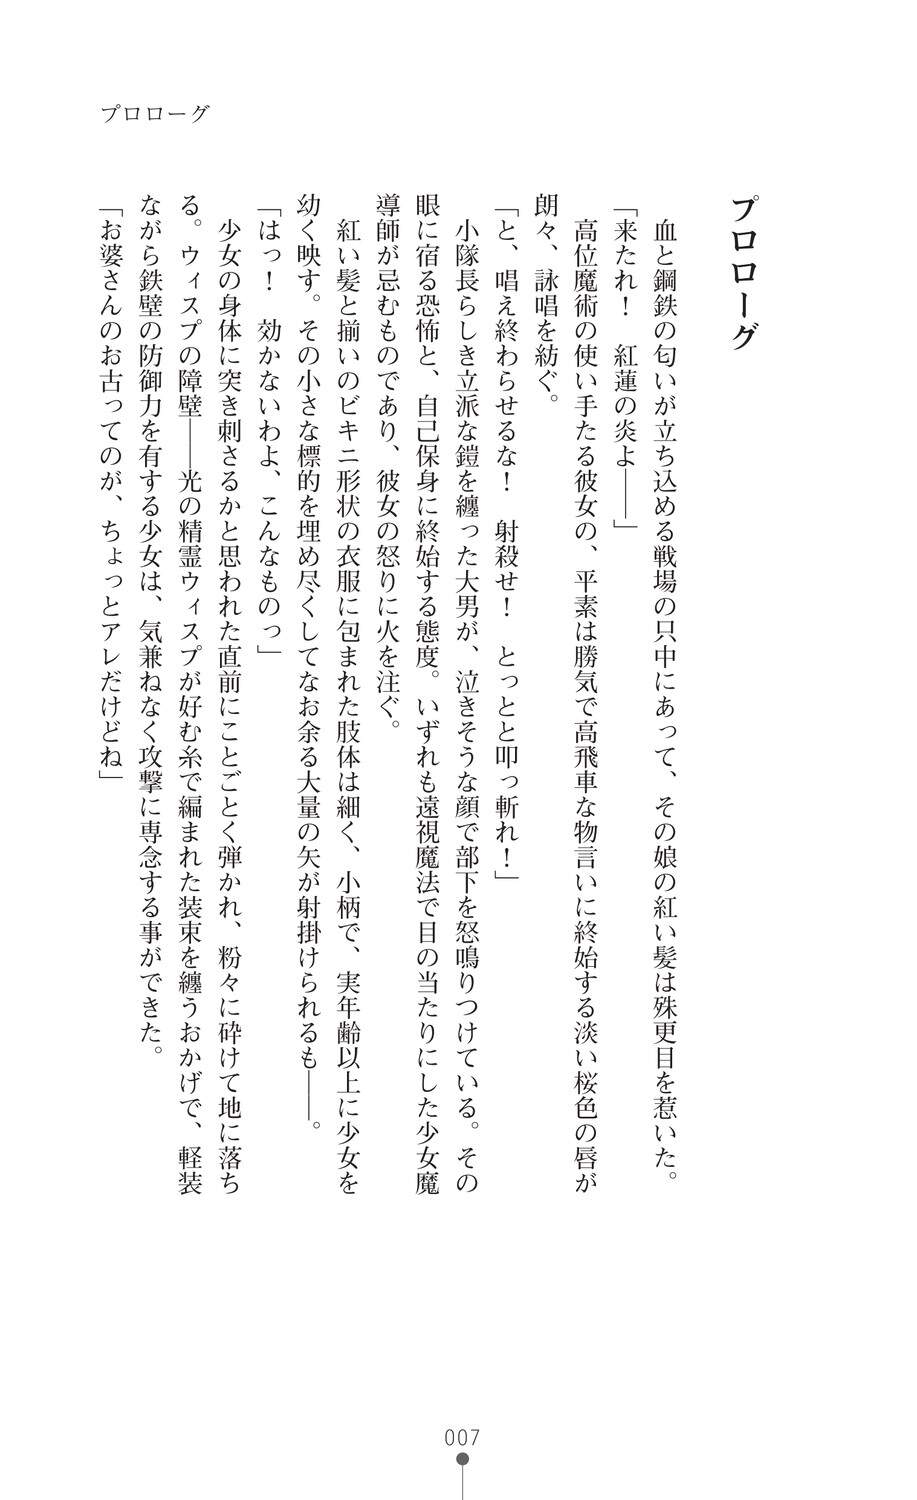 プロローグ
プロローグ
　血と鋼鉄の匂いが立ち込める戦場の只中にあって、その娘の紅い髪は殊更目を惹いた。
「来たれ！　紅蓮の炎よ――」
　高位魔術の使い手たる彼女の、平素は勝気で高飛車な物言いに終始する淡い桜色の唇が
朗々、詠唱を紡ぐ。
「と、唱え終わらせるな！　射殺せ！　とっとと叩っ斬れ！」
　小隊長らしき立派な鎧を纏った大男が、泣きそうな顔で部下を怒鳴りつけている。その
眼に宿る恐怖と、自己保身に終始する態度。いずれも遠視魔法で目の当たりにした少女魔
導師が忌むものであり、彼女の怒りに火を注ぐ。
　紅い髪と揃いのビキニ形状の衣服に包まれた肢体は細く、小柄で、実年齢以上に少女を
幼く映す。その小さな標的を埋め尽くしてなお余る大量の矢が射掛けられるも――。
「はっ！　効かないわよ、こんなものっ」
　少女の身体に突き刺さるかと思われた直前にことごとく弾かれ、粉々に砕けて地に落ち
る。ウィスプの障壁――光の精霊ウィスプが好む糸で編まれた装束を纏うおかげで、軽装
ながら鉄壁の防御力を有する少女は、気兼ねなく攻撃に専念する事ができた。
「お婆さんのお古ってのが、ちょっとアレだけどね」
007